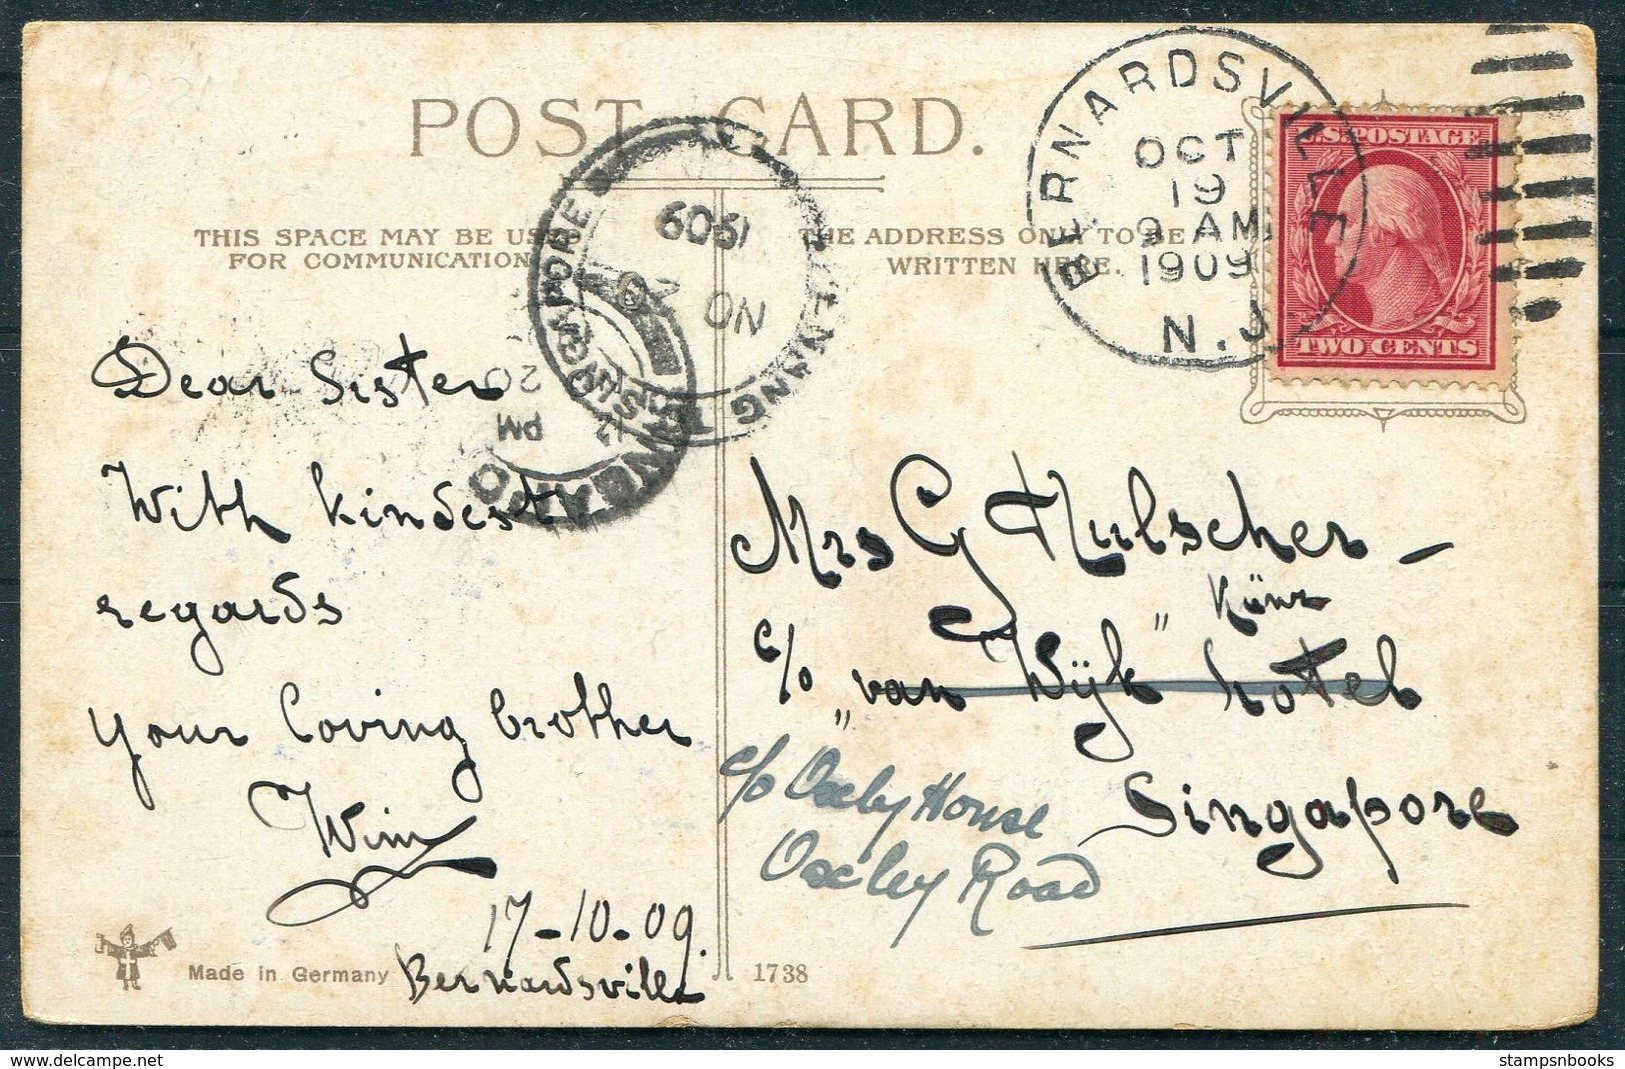 POST CARD.
THIS SPACE MAY BE USED
FOR COMMUNICATION
THE ADDRESS ONLY TO BE
WRITTEN HERE.
BERNARDSVILLE
OCT
19
9 AM
1909
N.J.
U.S. POSTAGE
TWO CENTS
PENANG TO SINGAPORE
1909
NO
SINGAPO
PM
20
Dear Sister
With kindest
regards
Your loving brother
Wim
17-10-09.
Bernardsville
Mrs G Hulscher -
Künz
c/o "van Wijk" hotel
Singapore
c/o Oxley House
Oxley Road
Made in Germany
1738
delcampe.net
stampsnbooks